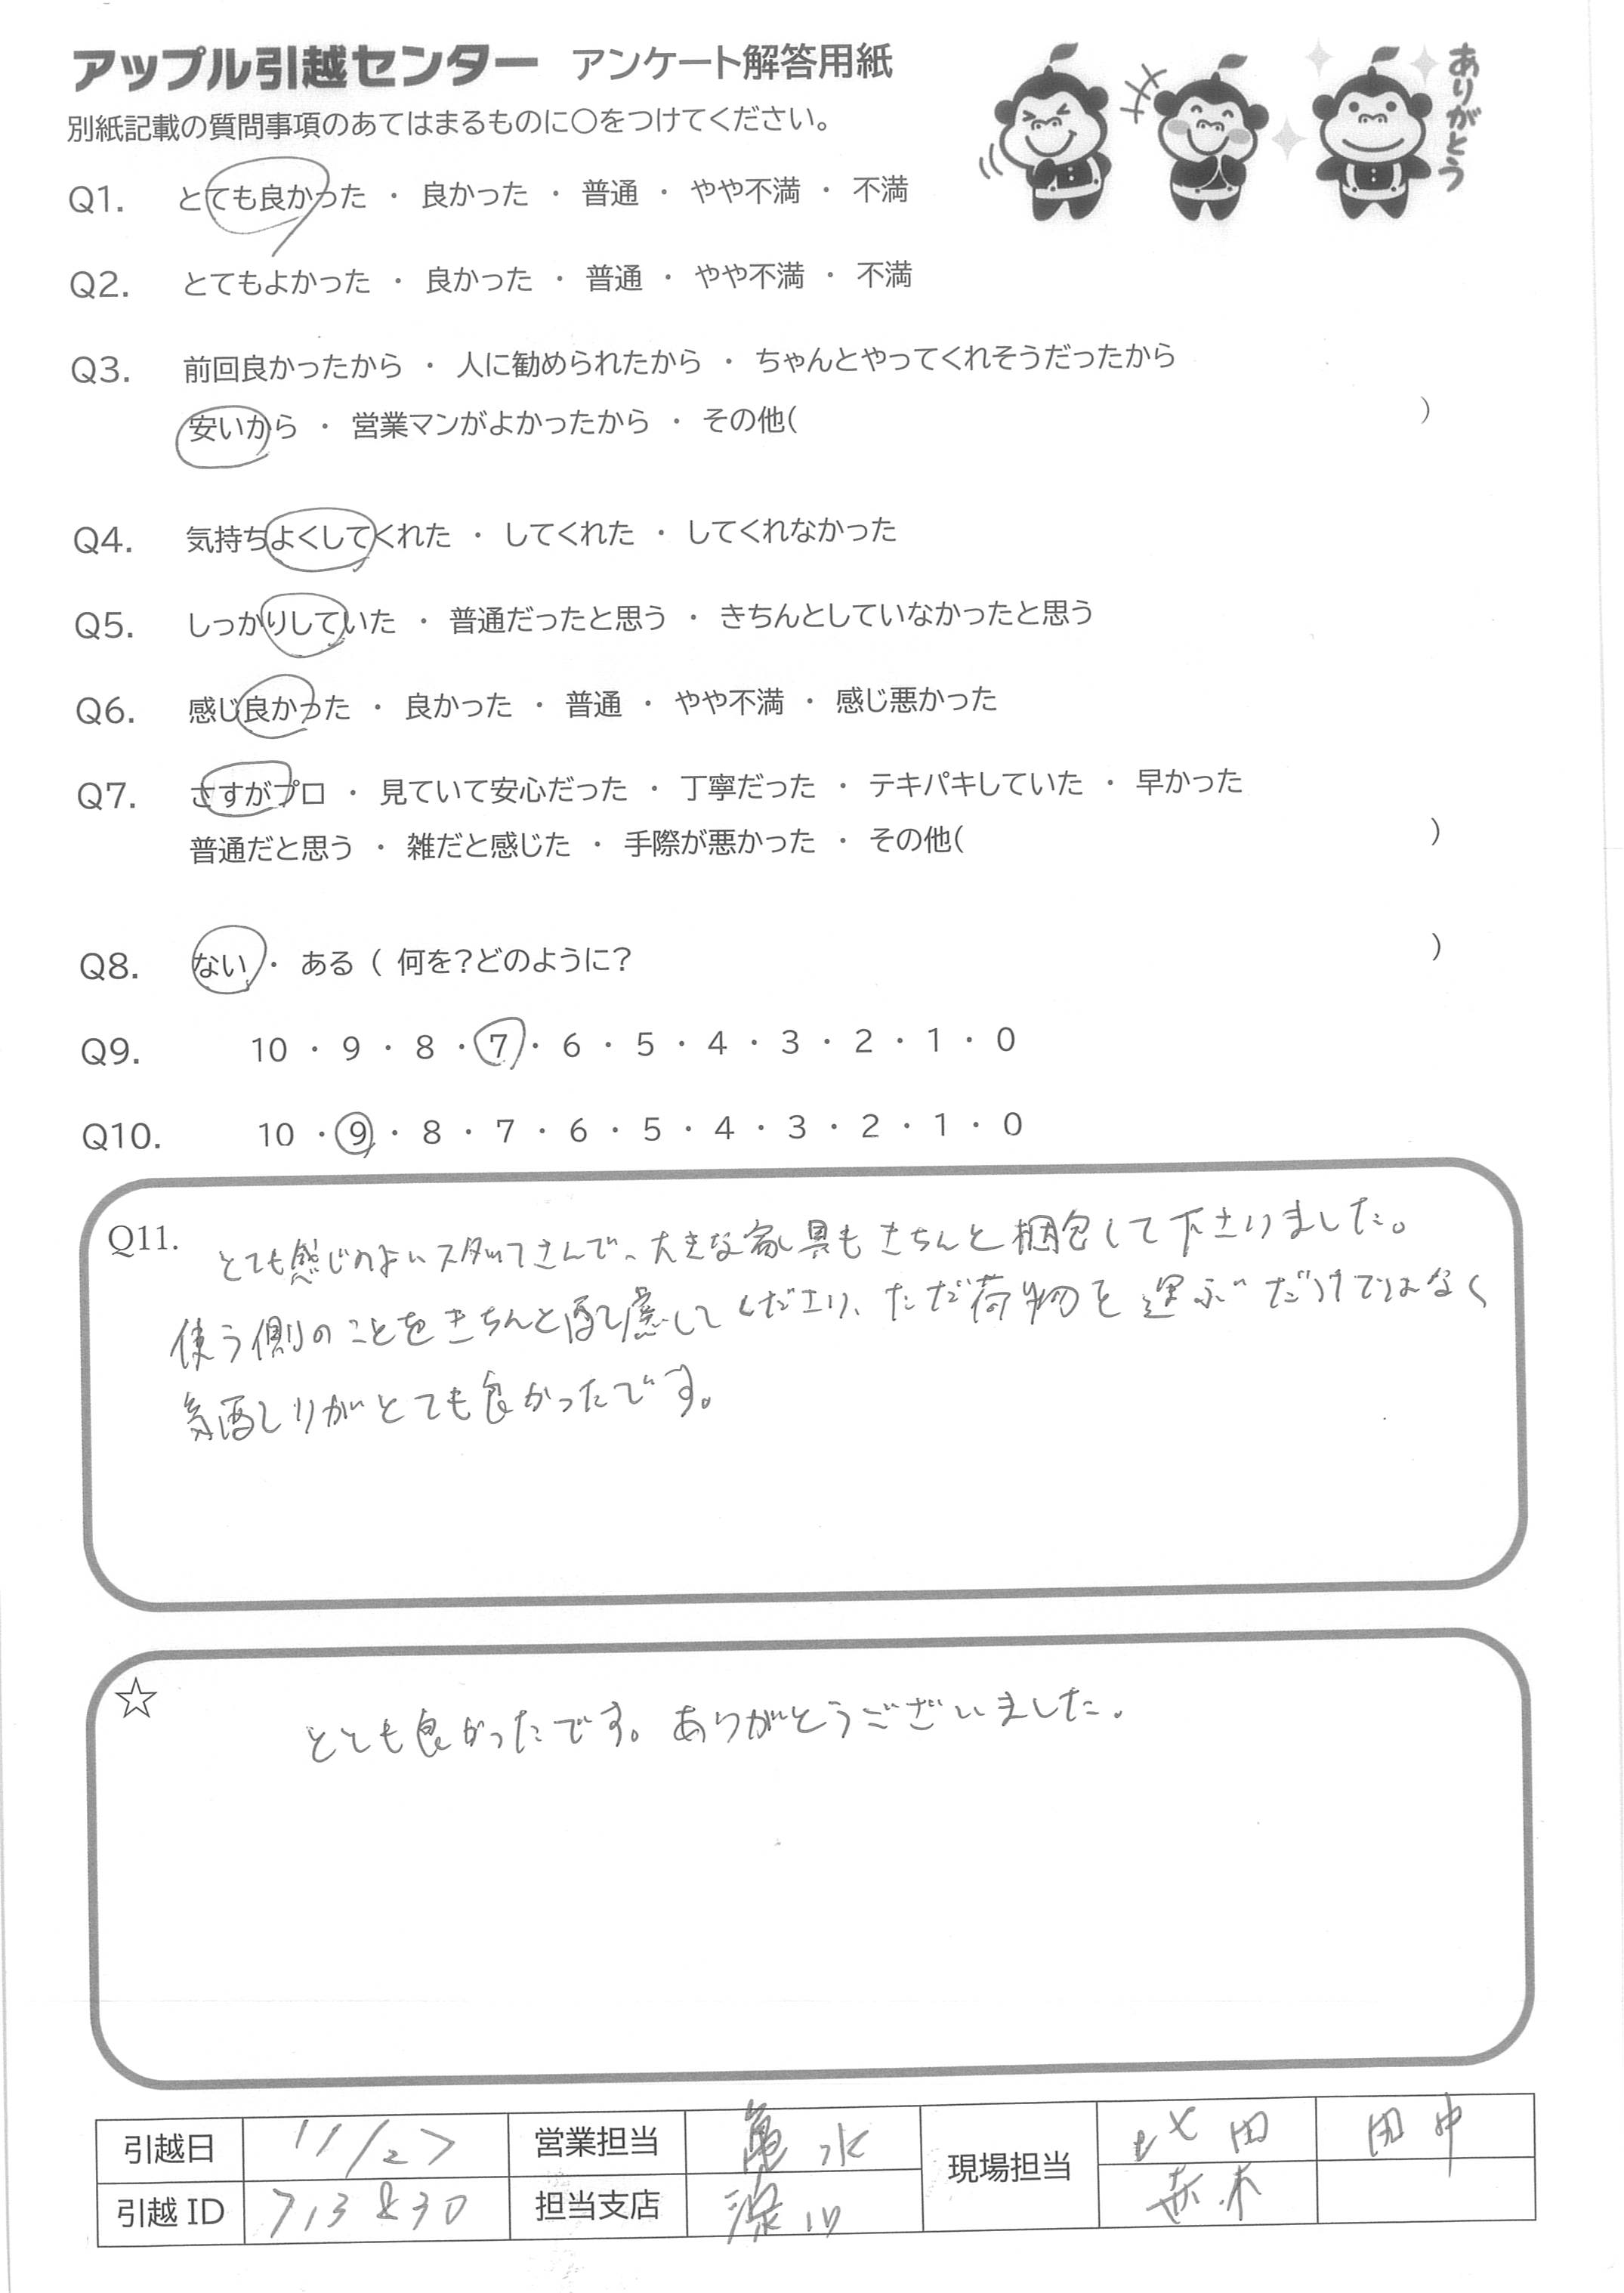 アップル引越センター アンケート解答用紙
ありがとう
別紙記載の質問事項のあてはまるものに○をつけてください。
Q1. とても良かった ・ 良かった ・ 普通 ・ やや不満 ・ 不満
Q2. とてもよかった ・ 良かった ・ 普通 ・ やや不満 ・ 不満
Q3. 前回良かったから ・ 人に勧められたから ・ ちゃんとやってくれそうだったから
安いから ・ 営業マンがよかったから ・ その他( )
Q4. 気持ちよくしてくれた ・ してくれた ・ してくれなかった
Q5. しっかりしていた ・ 普通だったと思う ・ きちんとしていなかったと思う
Q6. 感じ良かった ・ 良かった ・ 普通 ・ やや不満 ・ 感じ悪かった
Q7. さすがプロ ・ 見ていて安心だった ・ 丁寧だった ・ テキパキしていた ・ 早かった
普通だと思う ・ 雑だと感じた ・ 手際が悪かった ・ その他( )
Q8. ない ・ ある ( 何を?どのように? )
Q9. 10 ・ 9 ・ 8 ・ 7 ・ 6 ・ 5 ・ 4 ・ 3 ・ 2 ・ 1 ・ 0
Q10. 10 ・ 9 ・ 8 ・ 7 ・ 6 ・ 5 ・ 4 ・ 3 ・ 2 ・ 1 ・ 0
Q11. とても感じのよいスタッフさんで、大きな家具もきちんと梱包して下さいました。
使う側のことをきちんと配慮してくださり、ただ荷物を運ぶだけではなく
気配りがとても良かったです。
☆ とても良かったです。ありがとうございました。
引越日 11/27 営業担当 亀水 現場担当 田中
引越ID 713830 担当支店 赤木